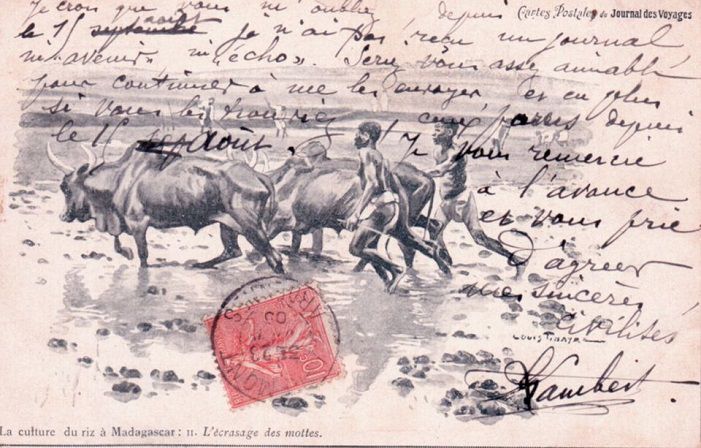 Cartes Postales du Journal des Voyages
Je crois que vous m'oubliez depuis
août
le 15 septembre je n'ai pas reçu un journal
ni «avenir» ni «écho». Serez vous assez aimable
pour continuer à me les envoyer et en plus
si vous les ceux parus depuis
le 15 août. Je vous remercie
à l'avance
et vous prie
d'agréer
mes sincères
civilités
LOUIS TINAYRE
Lambert
10
La culture du riz à Madagascar : 11. L'écrasage des mottes.